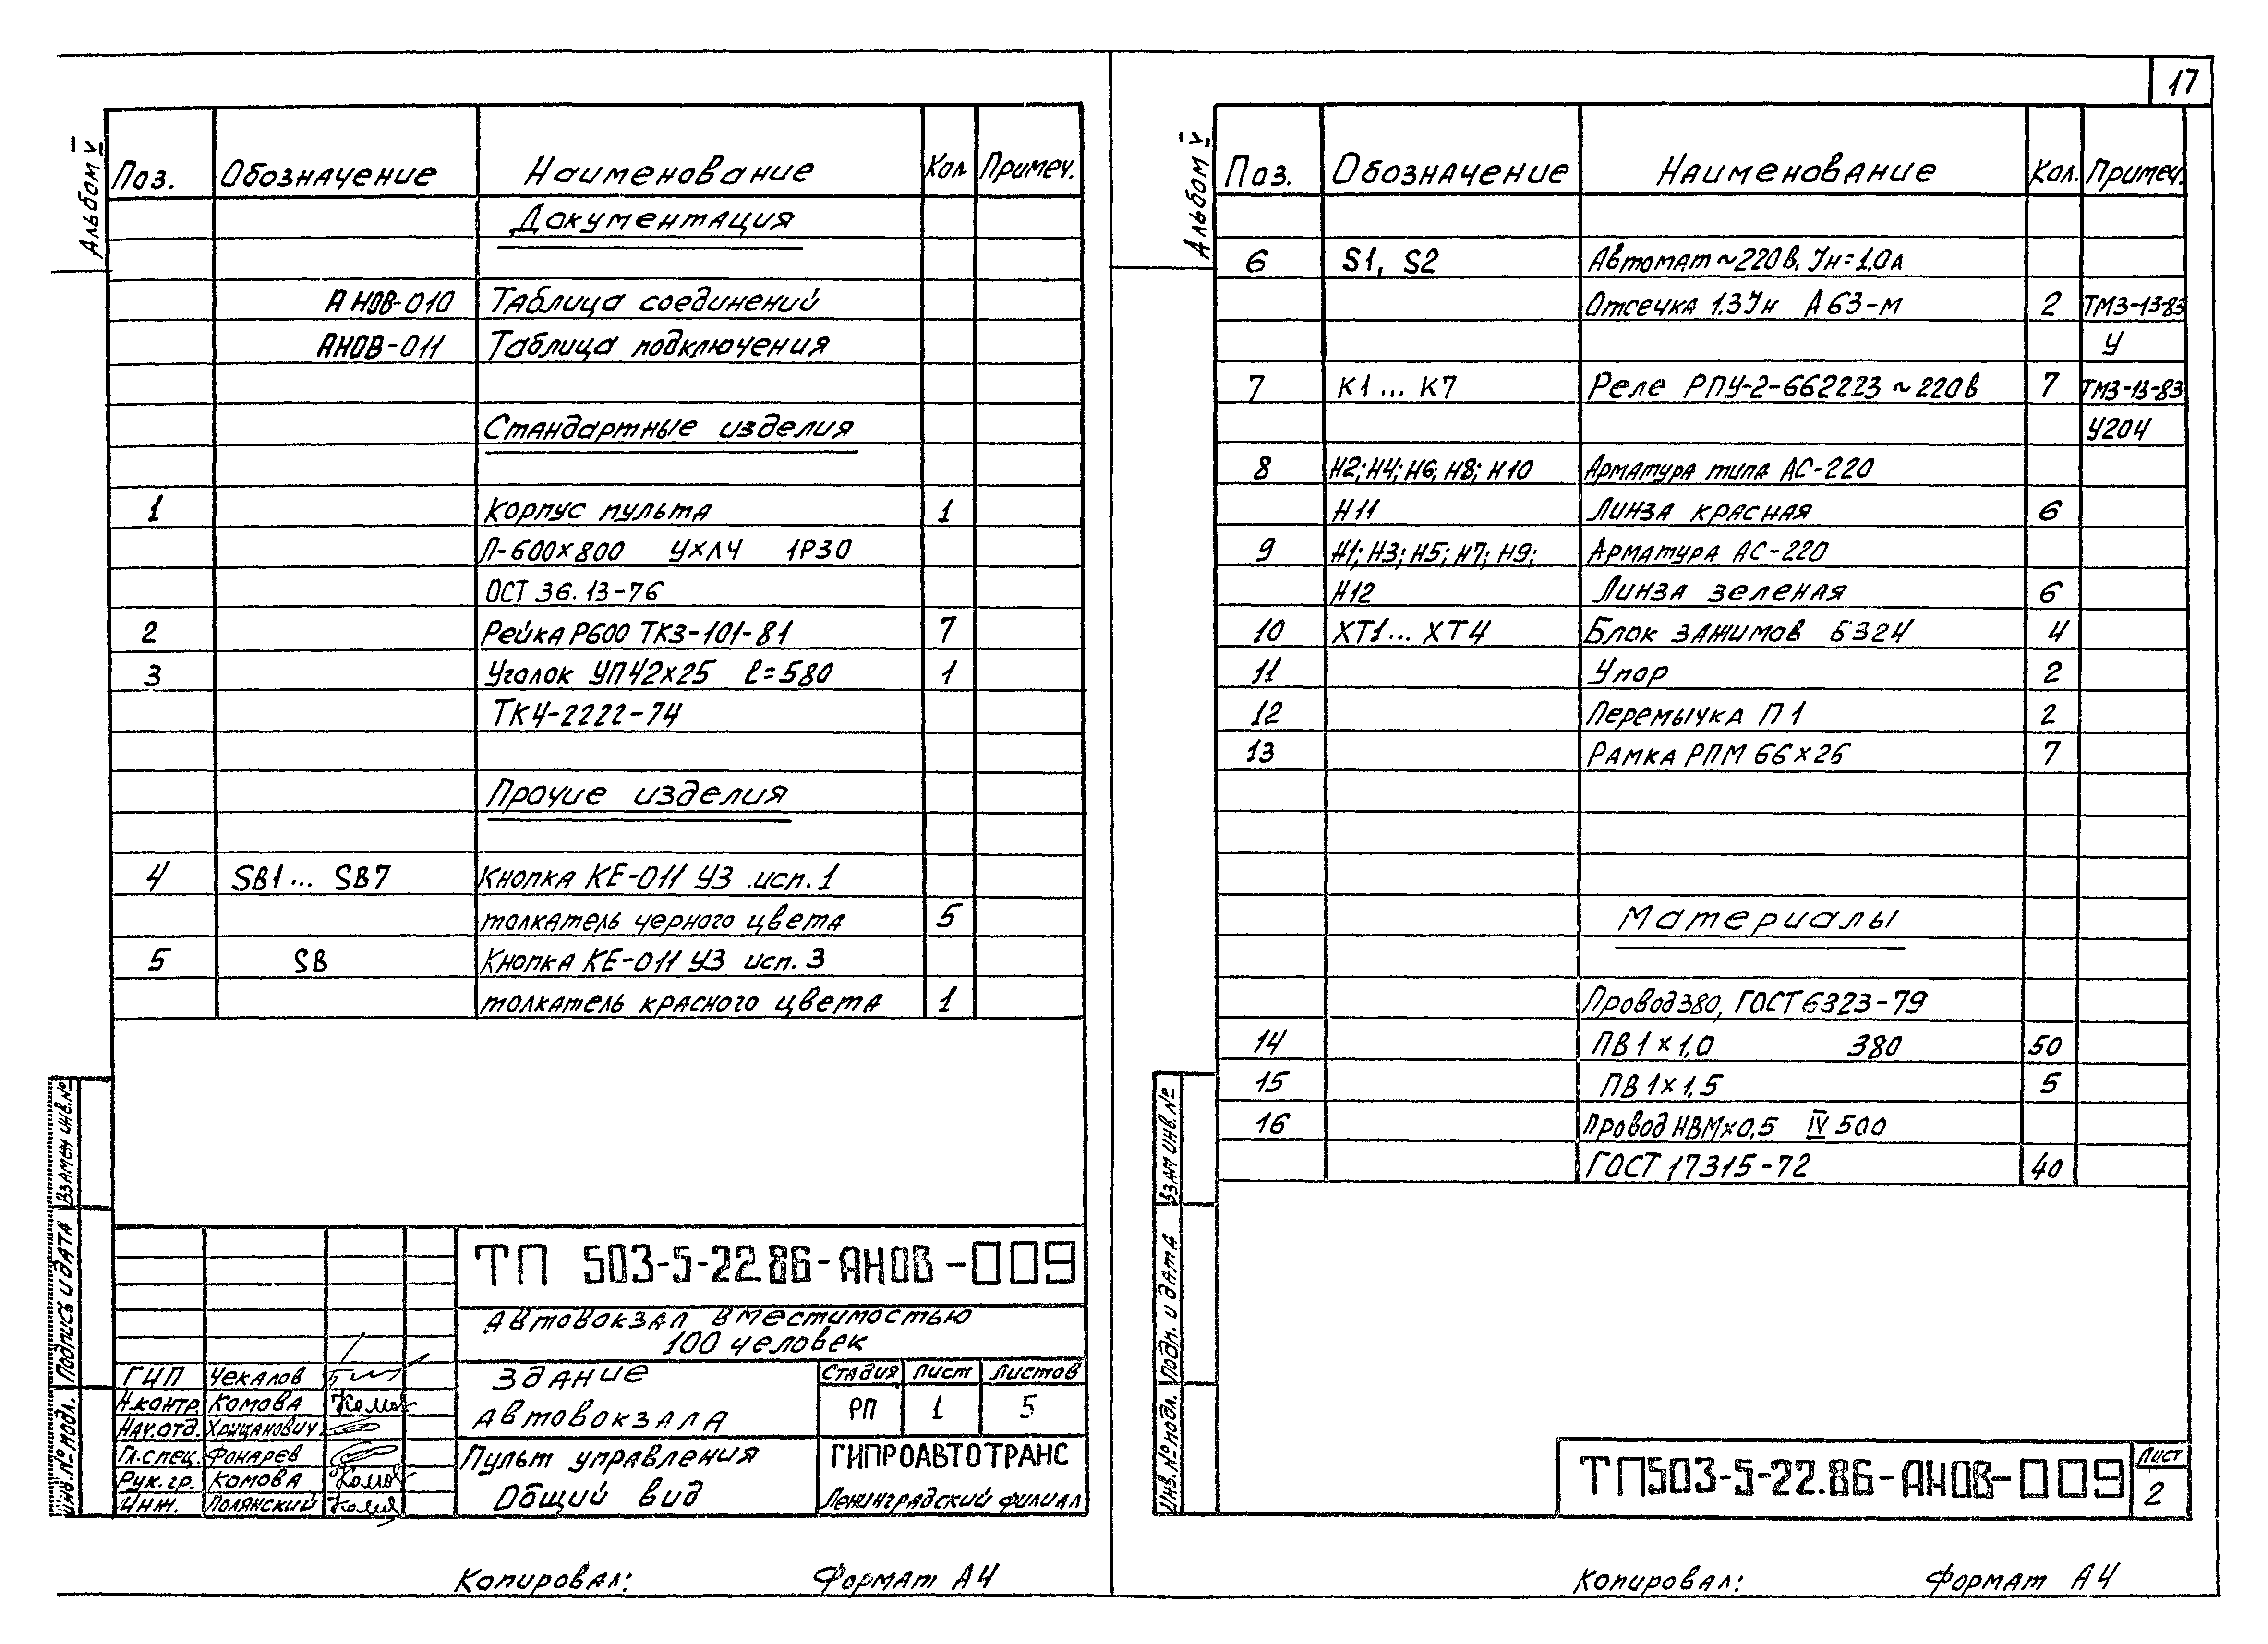 17
Альбом V
Поз. Обозначение Наименование Кол. Примеч.
Документация
АНОВ-010 Таблица соединений
АНОВ-011 Таблица подключения
Стандартные изделия
1 Корпус пульта 1
П-600х800 УХЛ4 1Р30
ОСТ 36.13-76
2 Рейка Р600 ТК3-101-81 7
3 Уголок УП42х25 l=580 1
ТК4-2222-74
Прочие изделия
4 SB1... SB7 Кнопка КЕ-011 У3 исп.1
толкатель черного цвета 5
5 SB Кнопка КЕ-011 У3 исп.3
толкатель красного цвета 1
Взамен инв.№
Подпись и дата
Инв.№ подл.
ТП 503-5-22.86-АНОВ-009
Автовокзал вместимостью
100 человек
ГИП Чекалов
Н.контр. Комова
Нач.отд. Хрищанович
Гл.спец. Фонарев
Рук.гр. Комова
Инж. Полянский
Здание
автовокзала
Стадия Лист Листов
РП 1 5
Пульт управления
Общий вид
ГИПРОАВТОТРАНС
Ленинградский филиал
Копировал: Формат А4
Альбом V
Поз. Обозначение Наименование Кол. Примеч.
6 S1, S2 Автомат ~220в, Iн=1,0а
Отсечка 1.3Iн А63-М 2 ТМ3-13-83
У
7 К1... К7 Реле РПУ-2-662223 ~220в 7 ТМ3-13-83
У204
8 Н2; Н4; Н6; Н8; Н10 Арматура типа АС-220
Н11 Линза красная 6
9 Н1; Н3; Н5; Н7; Н9; Арматура АС-220
Н12 Линза зеленая 6
10 ХТ1... ХТ4 Блок зажимов Б324 4
11 Упор 2
12 Перемычка П1 2
13 Рамка РПМ 66х26 7
Материалы
Провод 380, ГОСТ 6323-79
14 ПВ1х1,0 380 50
15 ПВ1х1,5 5
16 Провод НВМх0,5 IV 500
ГОСТ 17315-72 40
Взам инв.№
Подп. и дата
Инв.№ подл.
ТП503-5-22.86-АНОВ-009
Лист
2
Копировал: Формат А4